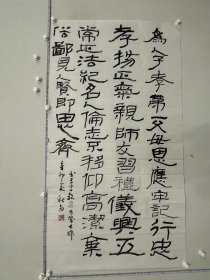 為人子孝弟父母恩應牢記行忠
孝揚正氣親師友習禮儀興五
常正法紀名人倫志移仰高潔棄
俗鄙見人賢即思齊